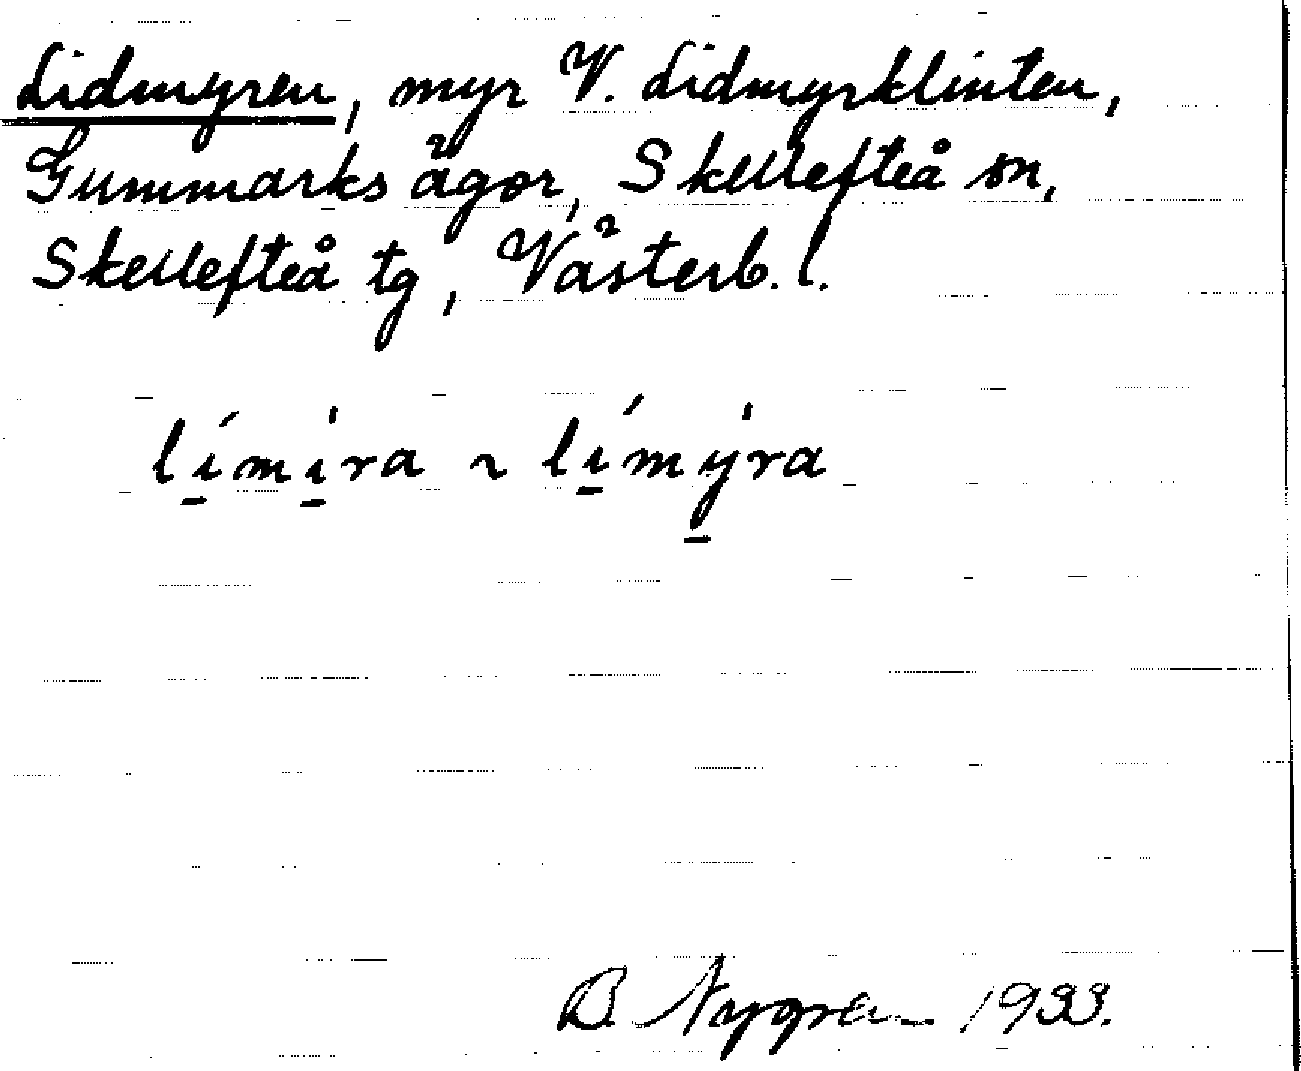 Lidmyren, myr V. Lidmyrklinten,
Gummarks ägor, Skellefteå sn,
Skellefteå tg, Västerb. l.
lí̱mi̱̍ra ~ lí̱my̱̍ra
B. Nygren 1933.